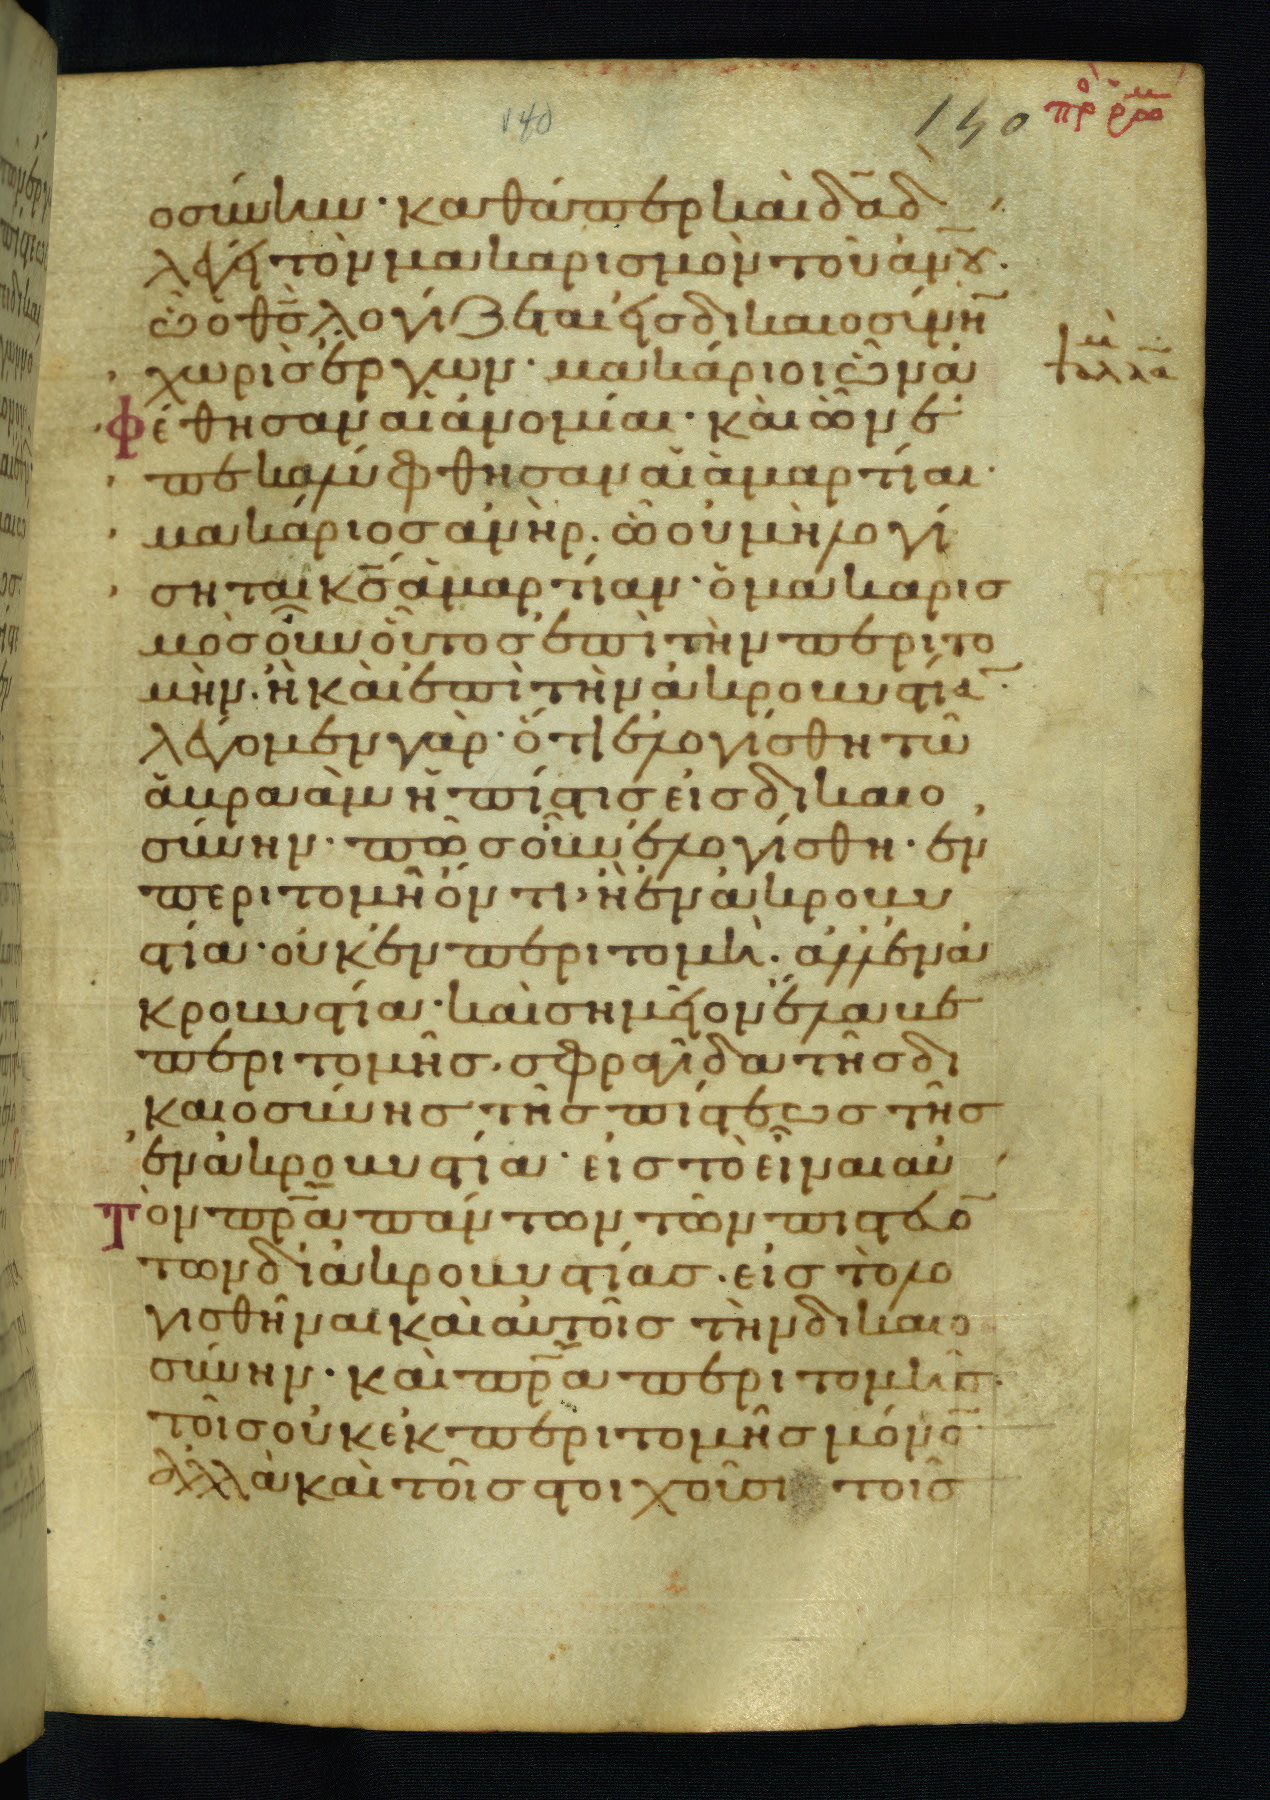 140
140 πρ ρωμ
οσύνην· καθάπερ καὶ δᾱδ
λέγει τὸν μακαρισμὸν τοῦ ἀν̅ου·
ὧ ὁ θ̅ς̅ λογίζεται εἰς δικαιοσύνη̅
χωρὶς ἔργων· μακάριοι ὧν ἀ
φέθησαν αἱ ἀνομίαι· καὶ ὧν ἐ
πεκαλύφθησαν αἱ ἁμαρτίαι·
μακάριος ἀνὴρ· ὧ οὐ μὴ λογί
σηται κ̅ς̅ ἁμαρτίαν· ὁ μακαρισ
μὸς οὖν οὗτος ἐπὶ τὴν περιτο
μὴν· ἢ καὶ ἐπὶ τὴν ἀκροβυστία̅·
λέγομεν γὰρ· ὅτι ἐλογίσθη τῶ
ἀβραὰμ ἡ πίστις εἰς δικαιο
σύνην· πῶς οὖν ἐλογίσθη· ἐν
περιτομῆ ὄντι, ἢ ἐν ἀκροβυ
στία· οὐκ ἐν περιτομῆ· ἀλλ' ἐν ἀ
κροβυστία· καὶ σημεῖον ἔλαβε
περιτομῆς· σφραγίδα τῆς δι
καιοσύνης τῆς πίστεως τῆς
ἐν ἀκροβυστία· εἰς τὸ εἶναι αὐ
τὸν π̅ρ̅α πάντων τῶν πιστευό̅
των δι' ἀκροβυστίας· εἰς τὸ λο
γισθῆναι καὶ αὐτοῖς τὴν δικαιο
σύνην· καὶ π̅ρ̅α περιτομῆς·
τοῖς οὐκ ἐκ περιτομῆς μόνο̅
ἀλλὰ καὶ τοῖς στοιχοῦσι τοῖς